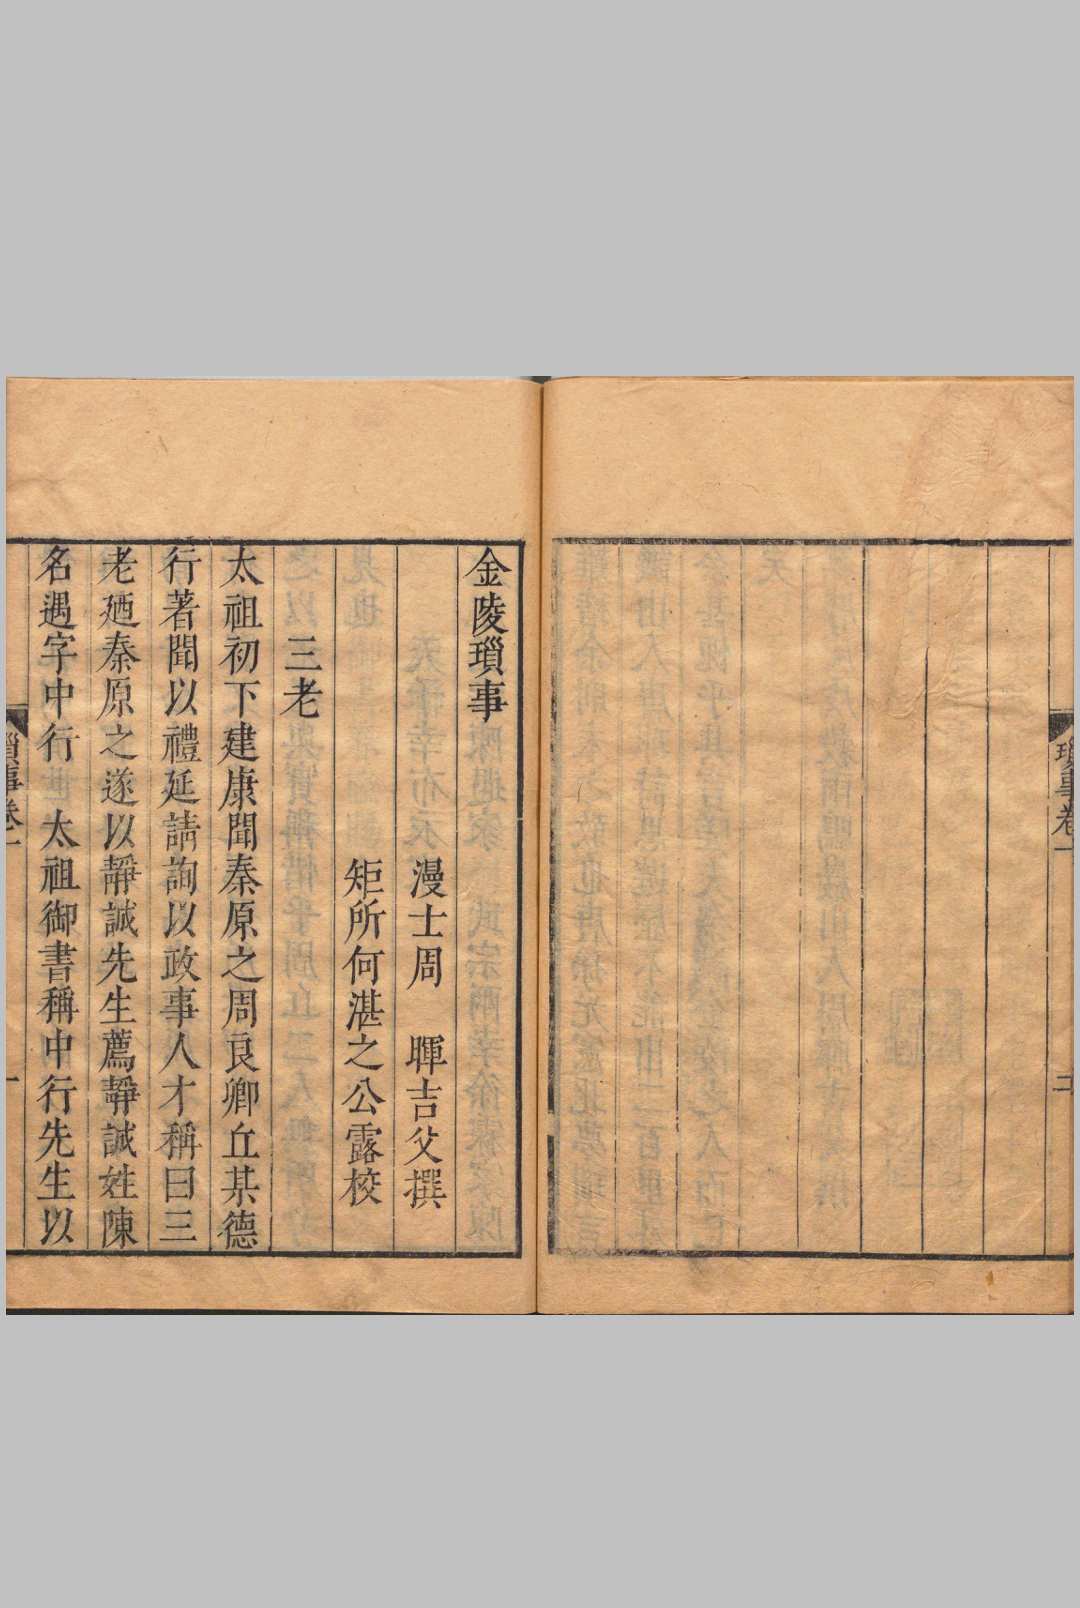 金陵瑣事
漫士周　暉吉父撰
矩所何湛之公露校
三老
太祖初下建康聞秦原之周良卿丘某德
行著聞以禮延請詢以政事人才稱曰三
老廼秦原之遂以靜誠先生薦靜誠姓陳
名遇字中行　太祖御書稱中行先生以
瑣事卷一
一